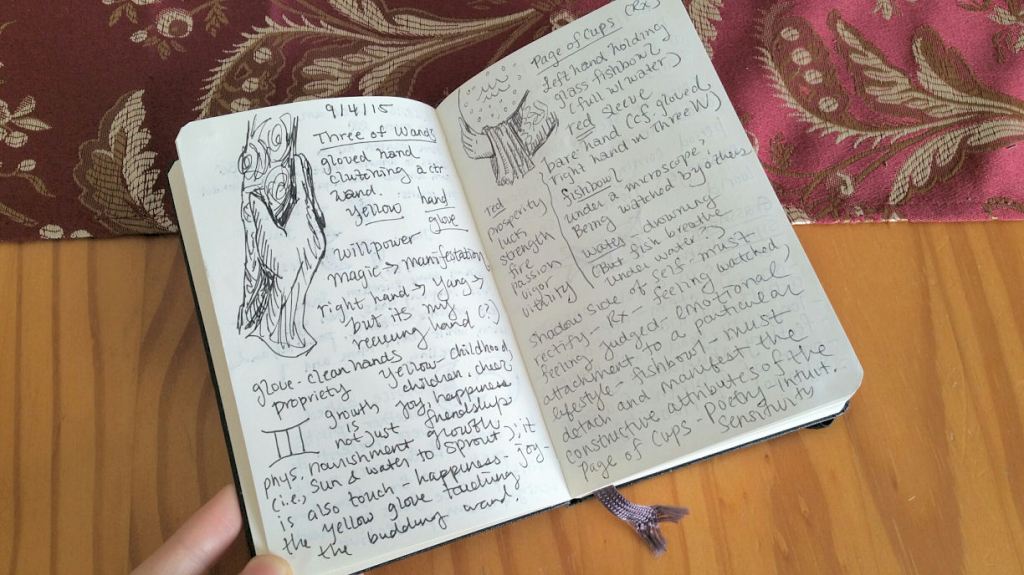 9/4/15
Three of Wands
gloved hand
clutching a ctr.
wand.
yellow hand
glove
willpower
magic → manifestation
right hand → yang →
but its my
receiving hand (?)
glove - clean hands yellow childhood
propriety children, cheer
growth, joy, happiness
is friendship
III not just growth
phys. nourishment
(i.e., sun & water to sprout); it
is also touch - happiness - joy -
the yellow glove touching
the budding wand!
Page of Cups (Rx)
left hand holding
glass fishbowl
(full w/ water)
red sleeve
bare hand (cf. gloved
right hand in Three W)
fishbowl
under a microscope;
Being watched by others
water - drowning
(But fish breathe
under water?)
red
prosperity
luck
strength
fire
passion
vigor
virility
shadow side of self - must
rectify - Rx - feeling watched,
feeling judged, emotional
attachment to a particular
lifestyle - fishbowl - must
detach and manifest the
constructive attributes of the
Page of Cups - Poetry - intuit.
sensitivity